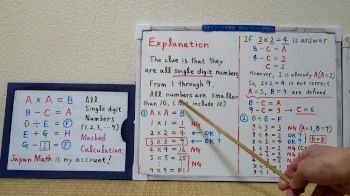 A × A = B
B − C = A
D ÷ E = F
E ÷ G = H
G − I = F
All
Single digit
Numbers
(1, 2, 3, ... 9)
Masked
Calculation.
Japan Math is my account!
Explanation
The clue is that they
are all single digit numbers.
From 1 through 9.
All numbers are smaller
than 10. (Not include 10)
① A × A = B
NG
2 × 2 = 4 ← OK?
3 × 3 = 9 ← OK?
4 × 4 = 16 NG
5 × 5 = 25
9 × 9 = 81 NG
If 2×2=4 is answer
B − C = A
4 − C = 2
C = 2
However, 2 is already A (A=2)
So, 2×2=4 is not correct.
A=3, B=9 are defined.
B − C = A
9 − C = 3 → C = 6
② D ÷ E = F
NG
(A=3, B=9)
D=8
NG